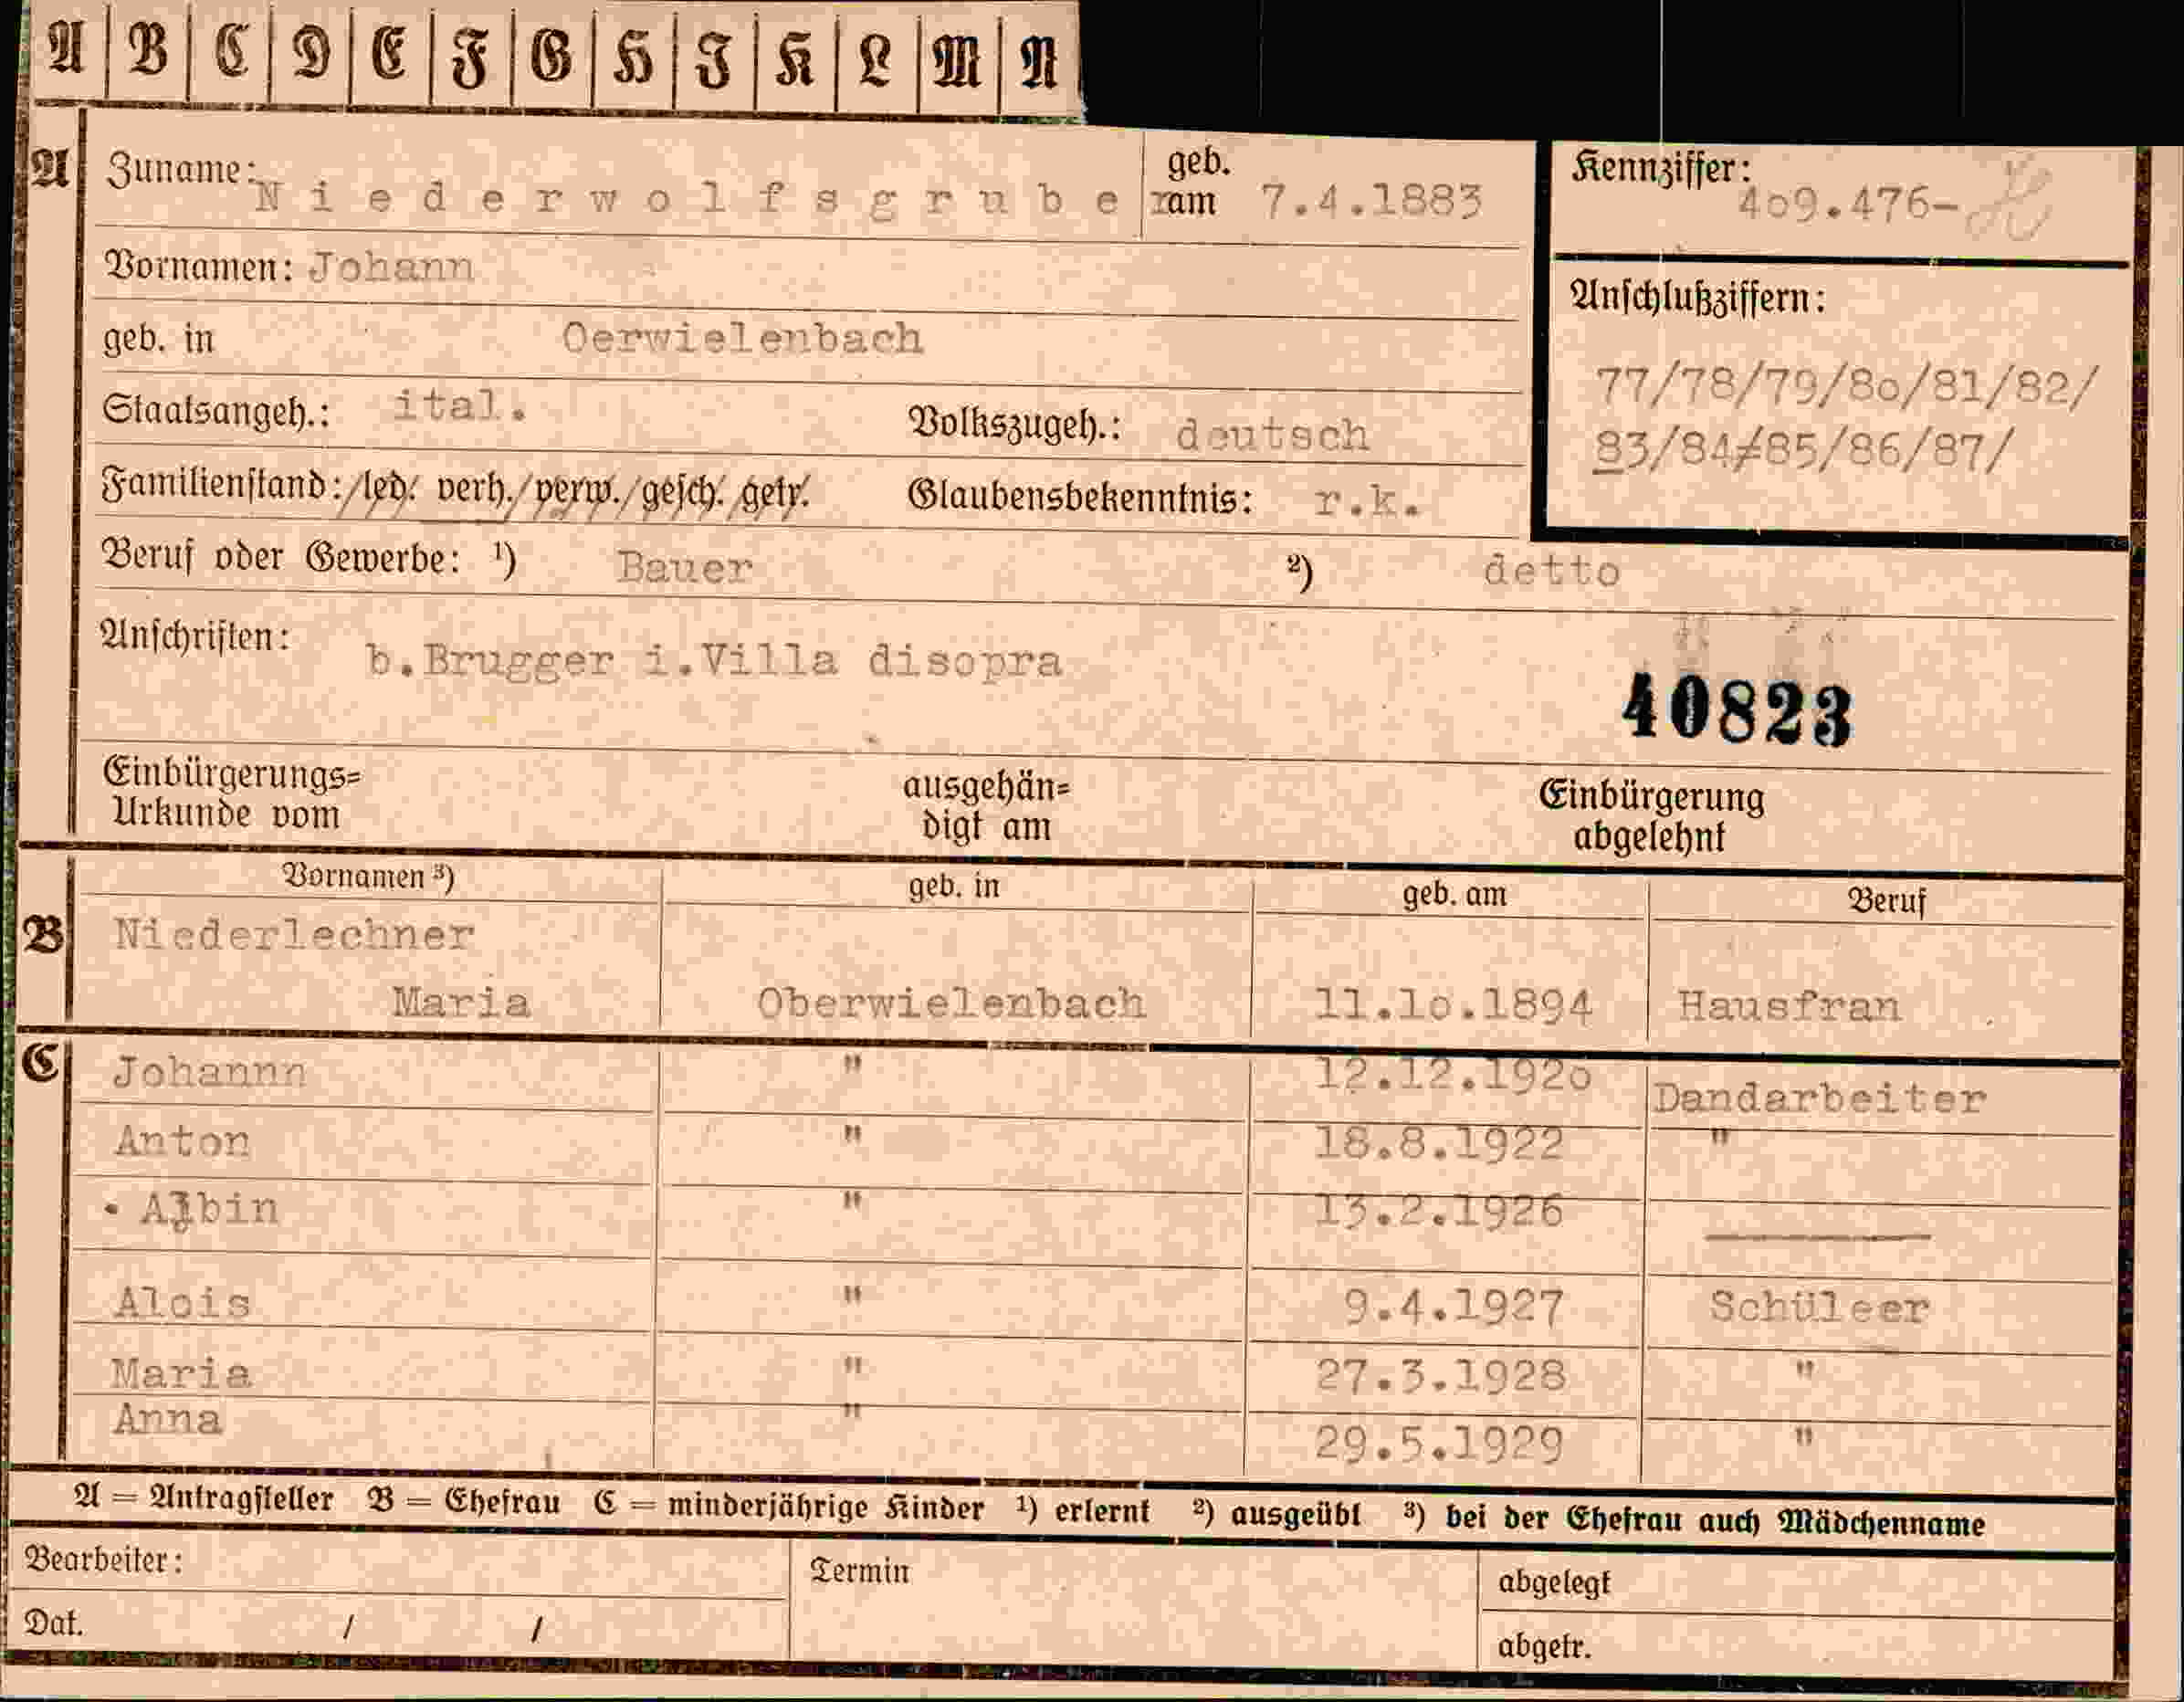 A B C D E F G H I K L M N
A Zuname: Niederwolfsgruber geb. am 7.4.1883
Kennziffer: 4o9.476-
Vornamen: Johann
Anschlußziffern:
geb. in Oerwielenbach
77/78/79/8o/81/82/
Staatsangeh.: ital. Volkszugeh.: deutsch
83/84/85/86/87/
Familienstand: /led. verh./verw./gesch./getr. Glaubensbekenntnis: r.k.
Beruf oder Gewerbe: ¹) Bauer ²) detto
Anschriften: b.Brugger i.Villa disopra
40823
Einbürgerungs= ausgehän= Einbürgerung
Urkunde vom digt am abgelehnt
Vornamen ³) geb. in geb. am Beruf
B Niederlechner
Maria Oberwielenbach 11.1o.1894 Hausfran
C Johannn " 12.12.192o Dandarbeiter
Anton " 18.8.1922 "
Albin " 13.2.1926
Alois " 9.4.1927 Schüleer
Maria " 27.3.1928 "
Anna " 29.5.1929 "
A = Antragsteller B = Ehefrau C = minderjährige Kinder ¹) erlernt ²) ausgeübt ³) bei der Ehefrau auch Mädchenname
Bearbeiter: Termin abgelegt
Dat. / / abgetr.